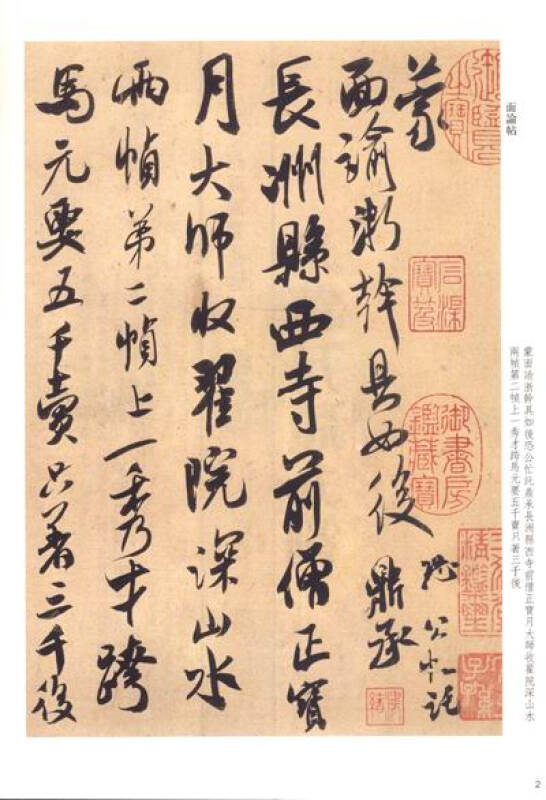 面論帖
蒙
面諭浙幹具如後
恐公忙託
鼎承
長洲縣西寺前僧正寶
月大師收翟院深山水
兩幀第二幀上一秀才跨
馬元要五千賣只著三千後
蒙面諭浙幹具如後恐公忙託鼎承長洲縣西寺前僧正寶月大師收翟院深山水
兩幀第二幀上一秀才跨馬元要五千賣只著三千後
御書房
鑑藏寶
2